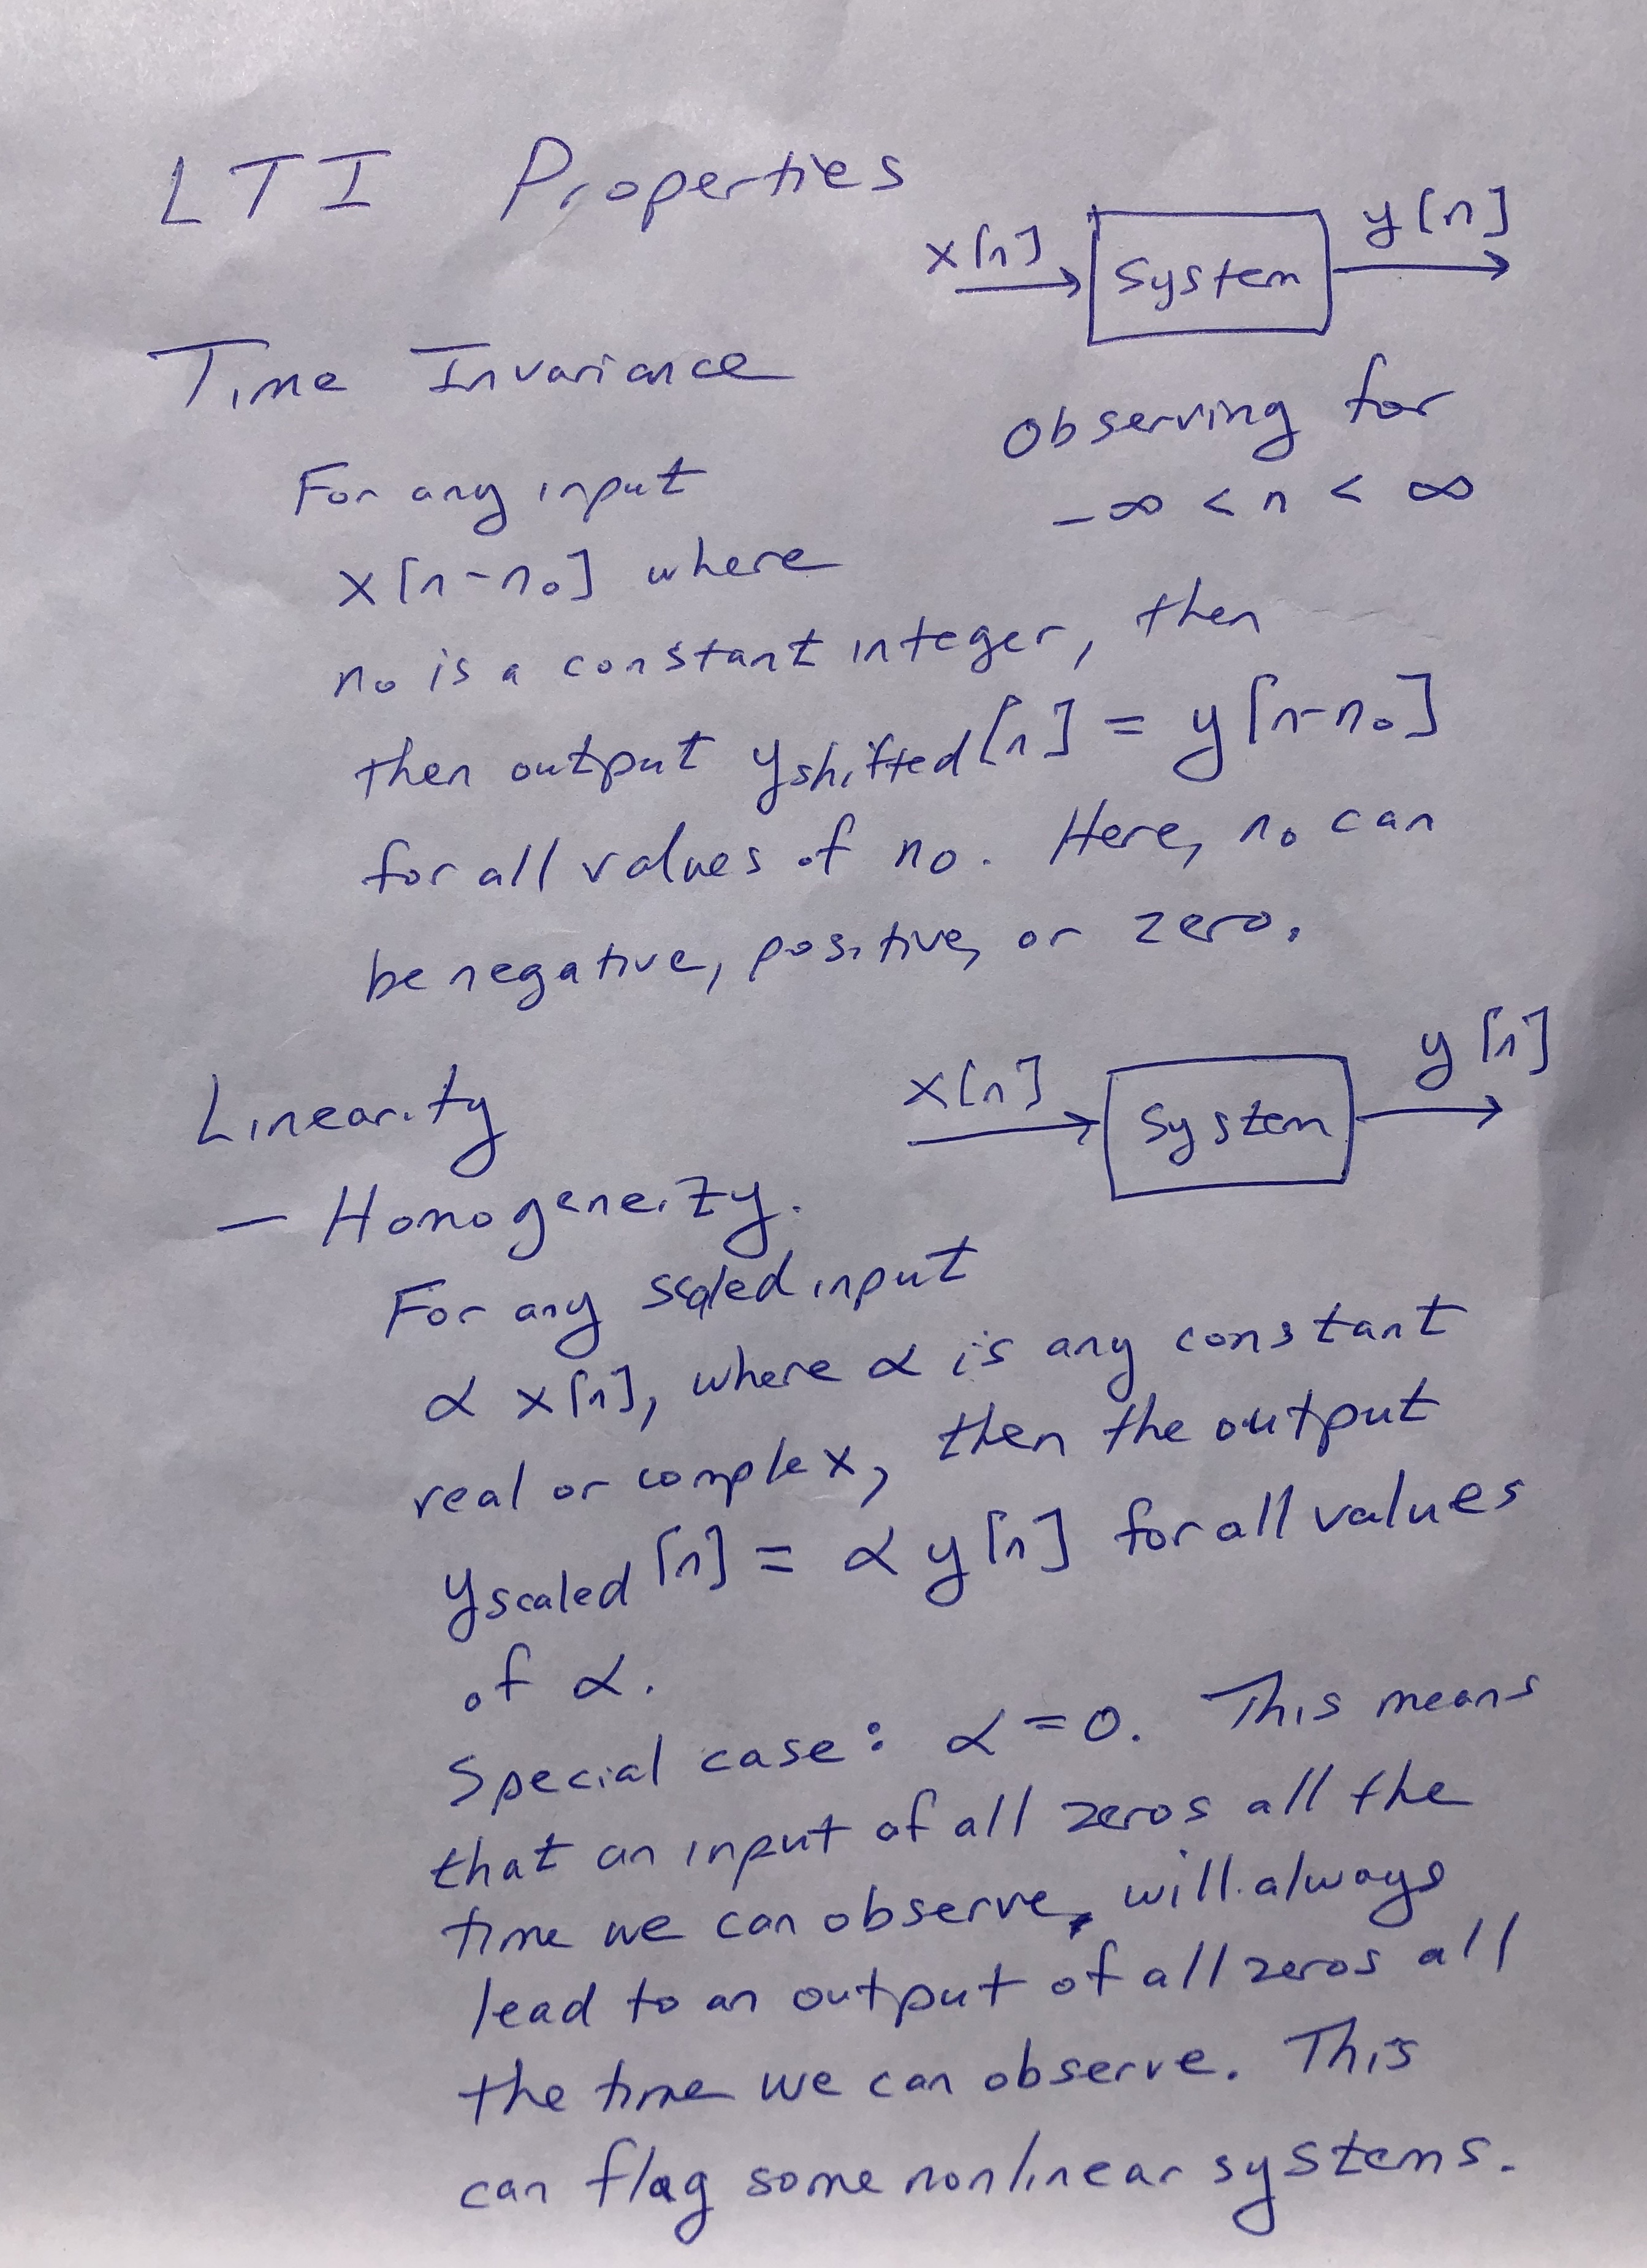 LTI Properties
x[n] System y[n]
Time Invariance
Observing for
-∞ < n < ∞
For any input
x[n-n₀] where
n₀ is a constant integer, then
then output y_shifted[n] = y[n-n₀]
for all values of n₀. Here, n₀ can
be negative, positive, or zero.
Linearity
x[n] System y[n]
— Homogeneity.
For any scaled input
α x[n], where α is any constant
real or complex, then the output
y_scaled[n] = α y[n] for all values
of α.
Special case: α=0. This means
that an input of all zeros all the
time we can observe, will always
lead to an output of all zeros all
the time we can observe. This
can flag some nonlinear systems.